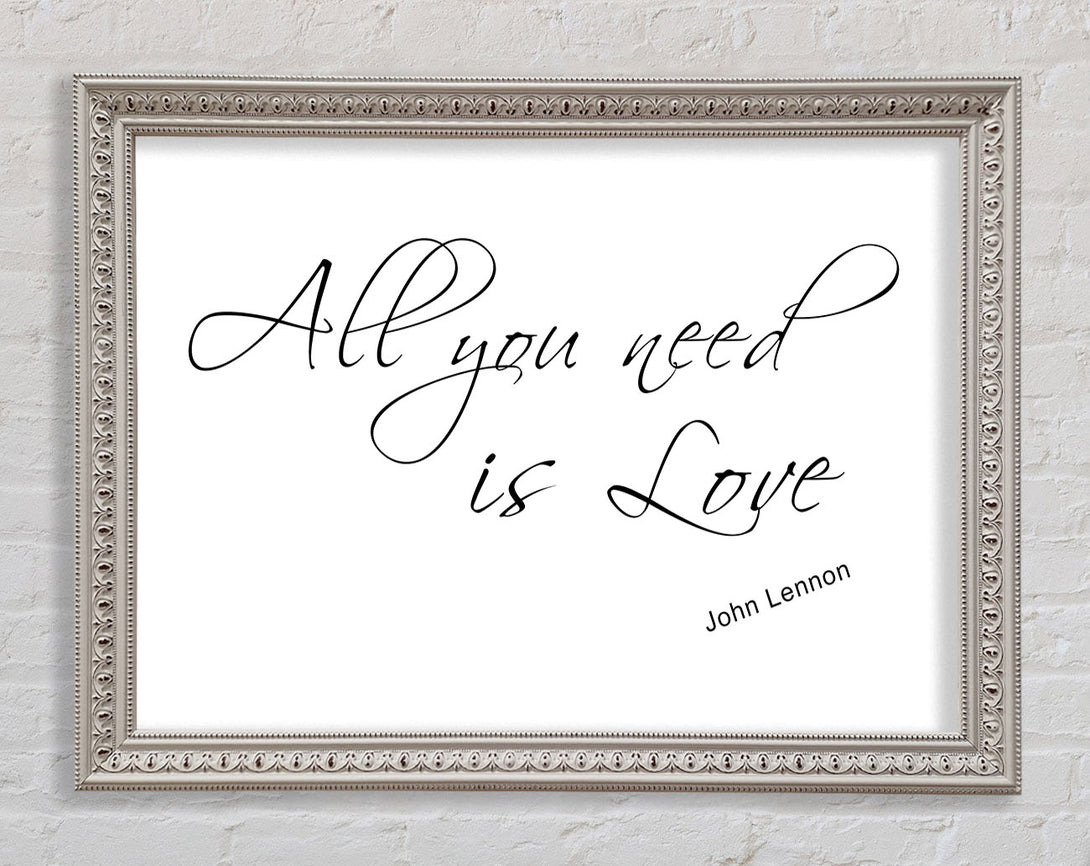 All you need
is Love
John Lennon